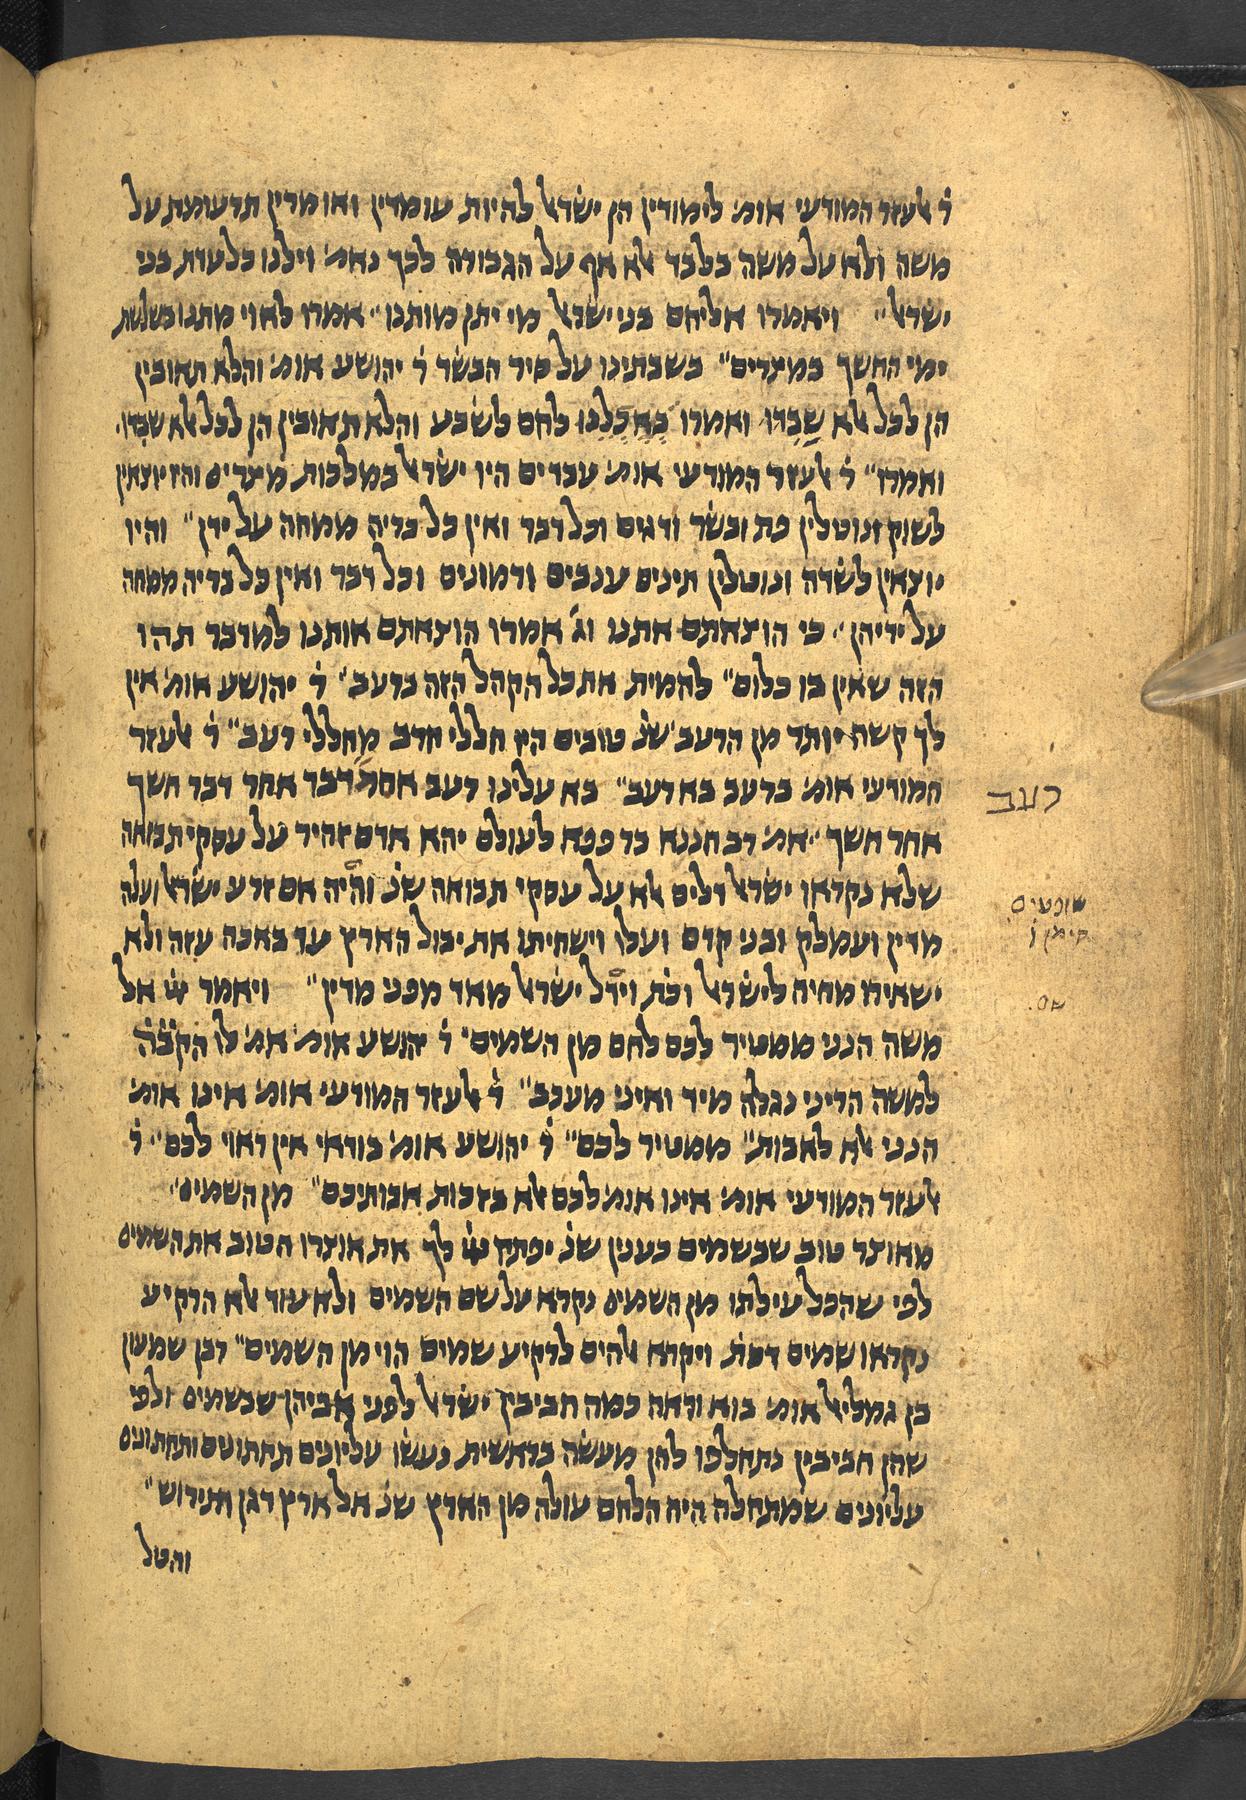 ר' אלעזר המודעי אומ' לימודין הן ישראל להיות עומדין ואומרין תרעומת על
משה ולא על משה בלבד אלא אף על הגבורה לכך נאמ' וילנו כל עדת בני
ישראל" ויאמרו אליהם בני ישראל מי יתן מותנו" אמרו לואי מתנו בשלשת
ימי החשך במצרים" בשבתינו על סיר הבשר ר' יהושע אומ' והלא תאובין
הן לכל אלא שברו ואמרו באכלנו לחם לשבע והלא תאובין הן לכל אלא שברו
ואמרו" ר' אלעזר המודעי אומ' עבדים היו ישראל במלכות מצרים והיו יוצאין
לשוק ונוטלין פת ובשר ודגים וכל דבר ואין כל בריה ממחה על ידן" והיו
יוצאין לשדה ונוטלין תינים ענבים ורמונים וכל דבר ואין כל בריה ממחה
על ידיהן" כי הוצאתם אתנו וג' אמרו הוצאתם אותנו למדבר תהו
הזה שאין בו כלום" להמית את כל הקהל הזה ברעב" ר' יהושע אומ' אין
לך קשה יותר מן הרעב שנ' טובים היו חללי חרב מחללי רעב" ר' אלעזר
המודעי אומ' ברעב בא רעב" בא עלינו רעב אחר רעב דבר אחר דבר חשך
אחר חשך" אמ' רב חננא בר פפא לעולם יהא אדם זהיר על עסקי תבואה
שלא נקראו ישראל דלים אלא על עסקי תבואה שנ' והיה אם זרע ישראל ועלה
מדין ועמלק ובני קדם ועלו וישחיתו את יבול הארץ עד באכה עזה ולא
ישאירו מחיה לישראל וכת' וידל ישראל מאד מפני מדין" ויאמר יי' אל
משה הנני ממטיר לכם לחם מן השמים" ר' יהושע אומ' אמ' לו הקב"ה
למשה הריני נגלה מיד ואיני מעכב" ר' אלעזר המודעי אומ' אינו אומ'
הנני אלא לאבות" ממטיר לכם" ר' יהושע אומ' בודאי אין ראוי לכם" ר'
אלעזר המודעי אומ' אינו אומ' לכם אלא בזכות אבותיכם" מן השמים"
מאוצר טוב שבשמים כענין שנ' יפתח יי' לך את אוצרו הטוב את השמים
לפי שהכל עילתו מן השמים נקרא על שם השמים ולא עוד אלא הרקיע
נקראו שמים דכת' ויקרא אלהים לרקיע שמים הוי מן השמים" רבן שמעון
בן גמליאל אומ' בוא וראה כמה חביבין ישראל לפני אביהן שבשמים ולפי
שהן חביבין נתחלפו להן מעשה בראשית נעשו עליונים תחתונים ותחתונים
עליונים שמתחלה היה הלחם עולה מן הארץ שנ' אל ארץ דגן ותירוש"
והטל
רעב
שופטים
סימן ו
שם.